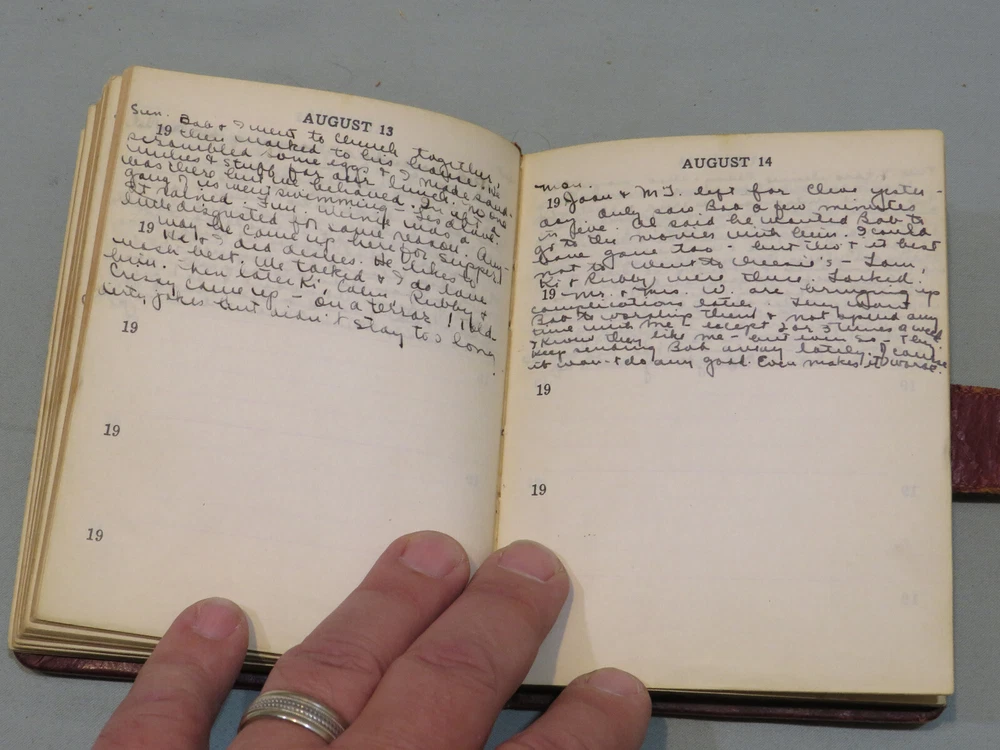 AUGUST 13
Sun. Bob & I went to church together
19 then walked to his house. We
scrambled some eggs & I made sand-
wiches & stuff for our lunch. No one
was there but we behaved. In the
gang & us went swimming -
It rained. Fuy Weinie was a
little disgusted for some reason. Any-
19 way he came up here for supper.
He & I did dishes. He likes to
wash best. We talked & I do love
him. Then later Ki, Lou, Ruby &
Crissy came up - on a terror! Told
dirty jokes but didn't stay too long
19
19
19
AUGUST 14
Mon.
19 Joan & M.J. left for Cleve yester-
day. Only saw Bob a few minutes
in five. Al said he wanted Bob to
go to the movies with him. I could
have gone too - but tho't it best
not to. Went to - Lou,
Ki & Ruby were there. Talked
19 - Mr. & Mrs. W. are bringing up
conversations lately. They want
Bob to worship them & not spend any
time with me except 2 or 3 times a week.
I know they like me - but even so - They
keep sending Bob away lately.
it won't do any good. Even makes it worse.
19
19